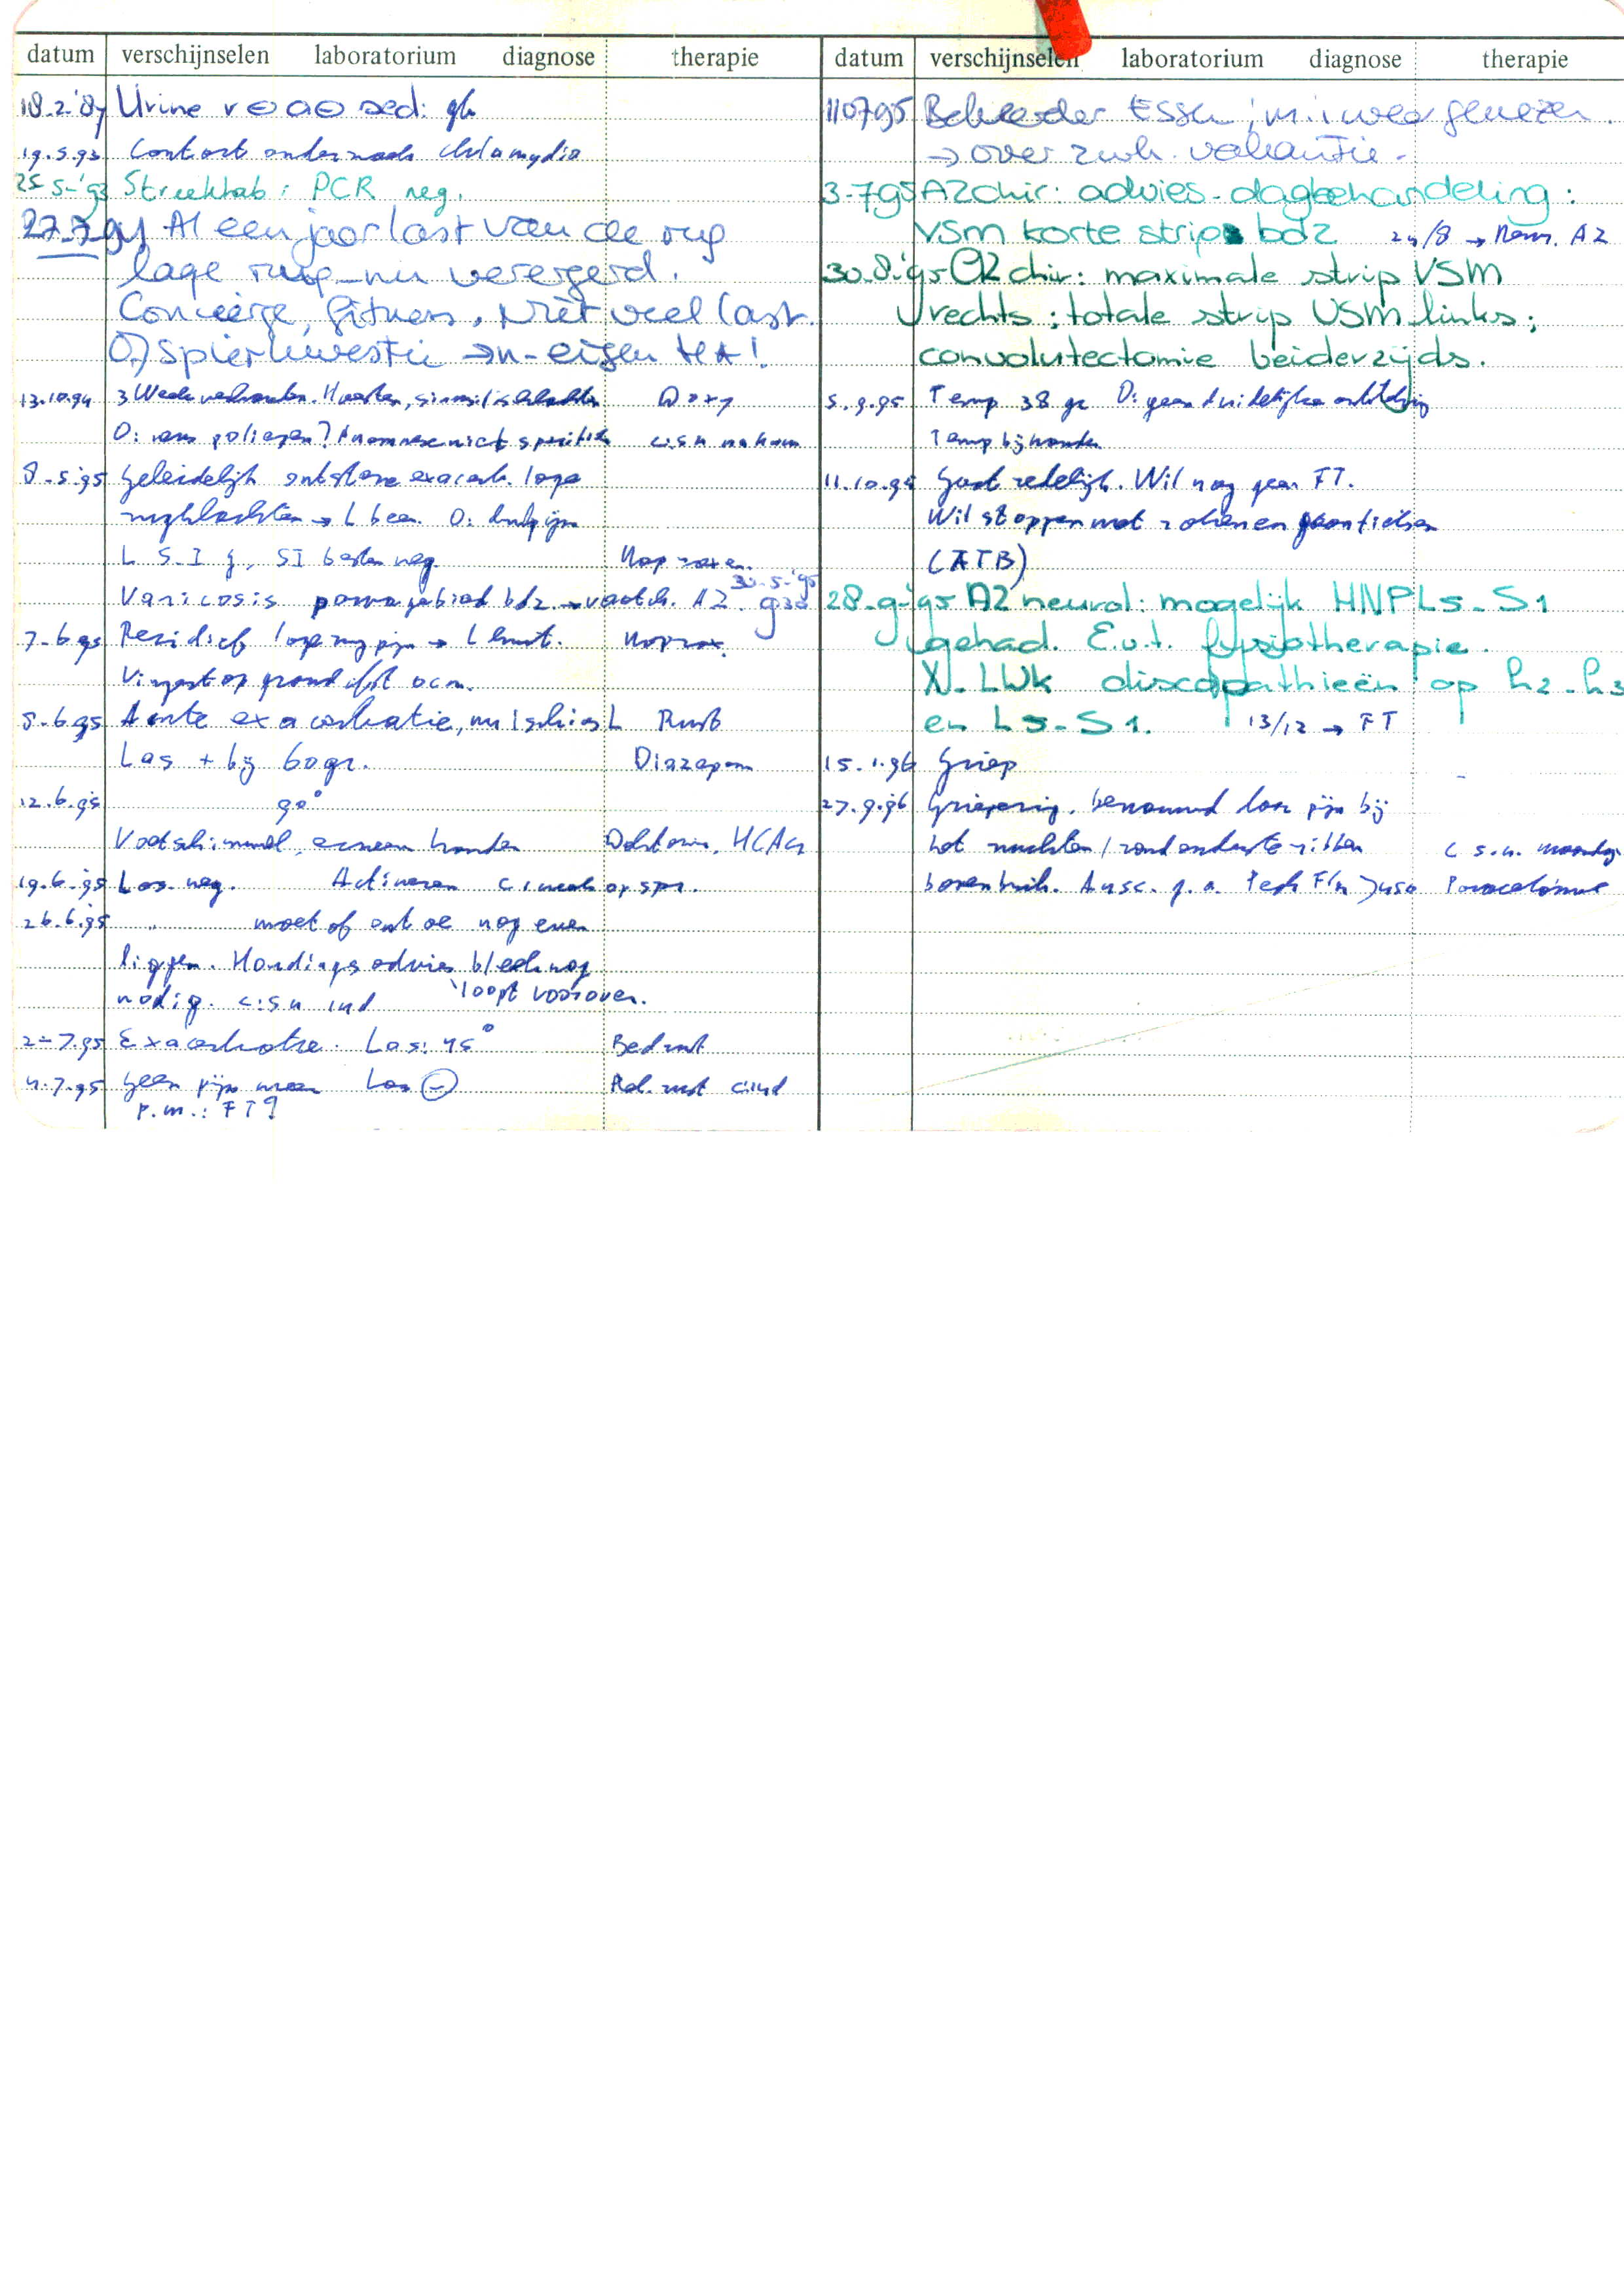 datum verschijnselen laboratorium diagnose therapie
18.2.'87 Urine r ⊖ a ⊖ sed: gb
19.5.93 Contact onderzoek chlamydia
25-5-'93 Streeklab: PCR neg.
27.7.94 Al een jaar last van de rug
lage rug-nu verergerd.
Conciërge, fitness. Niet veel last.
O.) spierkwestie → n- eigen HA!
13.10.94 3 Weken verkouden. Hoesten, sinusitisklachten Doxy
O: poliepen? Anamnese niet specifiek c.s.n.
8-5-95 Geleidelijk ontstane exacerb. lage
rugklachten → L been. O: drukpijn
L S-I, SI testen neg. Naproxen.
Varicosis bdz → vaatch. AZ. 30-5-'95 g30
7-6-95 Recidief lage rugpijn → L Naprox.
Vingertop grond afst 0 cm.
8-6-95 Acute exacerbatie, nu ischias L Rust
Las + bij 60 gr. Diazepam
12.6.95 90°
Voetschimmel, eczeem handen Daktarin, HCA
19.6.95 Las neg. Activeren c 1 week op spr.
26.6.95 " moet af en toe nog even
liggen. Houdings advies bleek nog
nodig. c.s.n ind 'loopt voorover.
2-7.95 Exacerbatie. Las: 45° Bedrust
4.7.95 Geen pijn meer Las ⊖ Rel. rust
p.m.: FT?
datum verschijnselen laboratorium diagnose therapie
110795 Essen; m.i weer genezen.
→ over 2 wk. vakantie.
3-795 AZ chir: advies-dagbehandeling:
VSM korte strip bdz 24/8 → AZ
30.8.'95 AZ chir: maximale strip VSM
rechts; totale strip VSM links;
convolutectomie beiderzijds.
5.9.95 Temp 38 gr O: geen duidelijke
Temp bijhouden
11.10.95 Gaat redelijk. Wil nog geen FT.
Wil stoppen met roken en gaan fietsen
(ATB)
28-9-'95 AZ neurol: mogelijk HNP L5-S1
gehad. E.v.t. fysiotherapie.
X-LWK discopathieën op L2-L3
en L5-S1. 13/12 → FT
15.1.96 Griep
27.9.96 Grieperig, benauwd pijn bij
het zuchten / rond onderste ribben c s.n. maandag
bovenbuik. Ausc. g.a. Peak Flow 450 Paracetamol